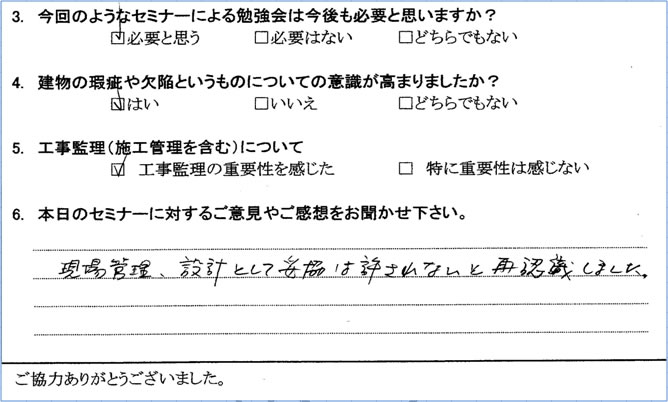 3. 今回のようなセミナーによる勉強会は今後も必要と思いますか？
☑必要と思う □必要はない □どちらでもない
4. 建物の瑕疵や欠陥というものについての意識が高まりましたか？
☑はい □いいえ □どちらでもない
5. 工事監理（施工管理を含む）について
☑ 工事監理の重要性を感じた □ 特に重要性は感じない
6. 本日のセミナーに対するご意見やご感想をお聞かせ下さい。
現場管理、設計として妥協は許されないと再認識しました。
ご協力ありがとうございました。